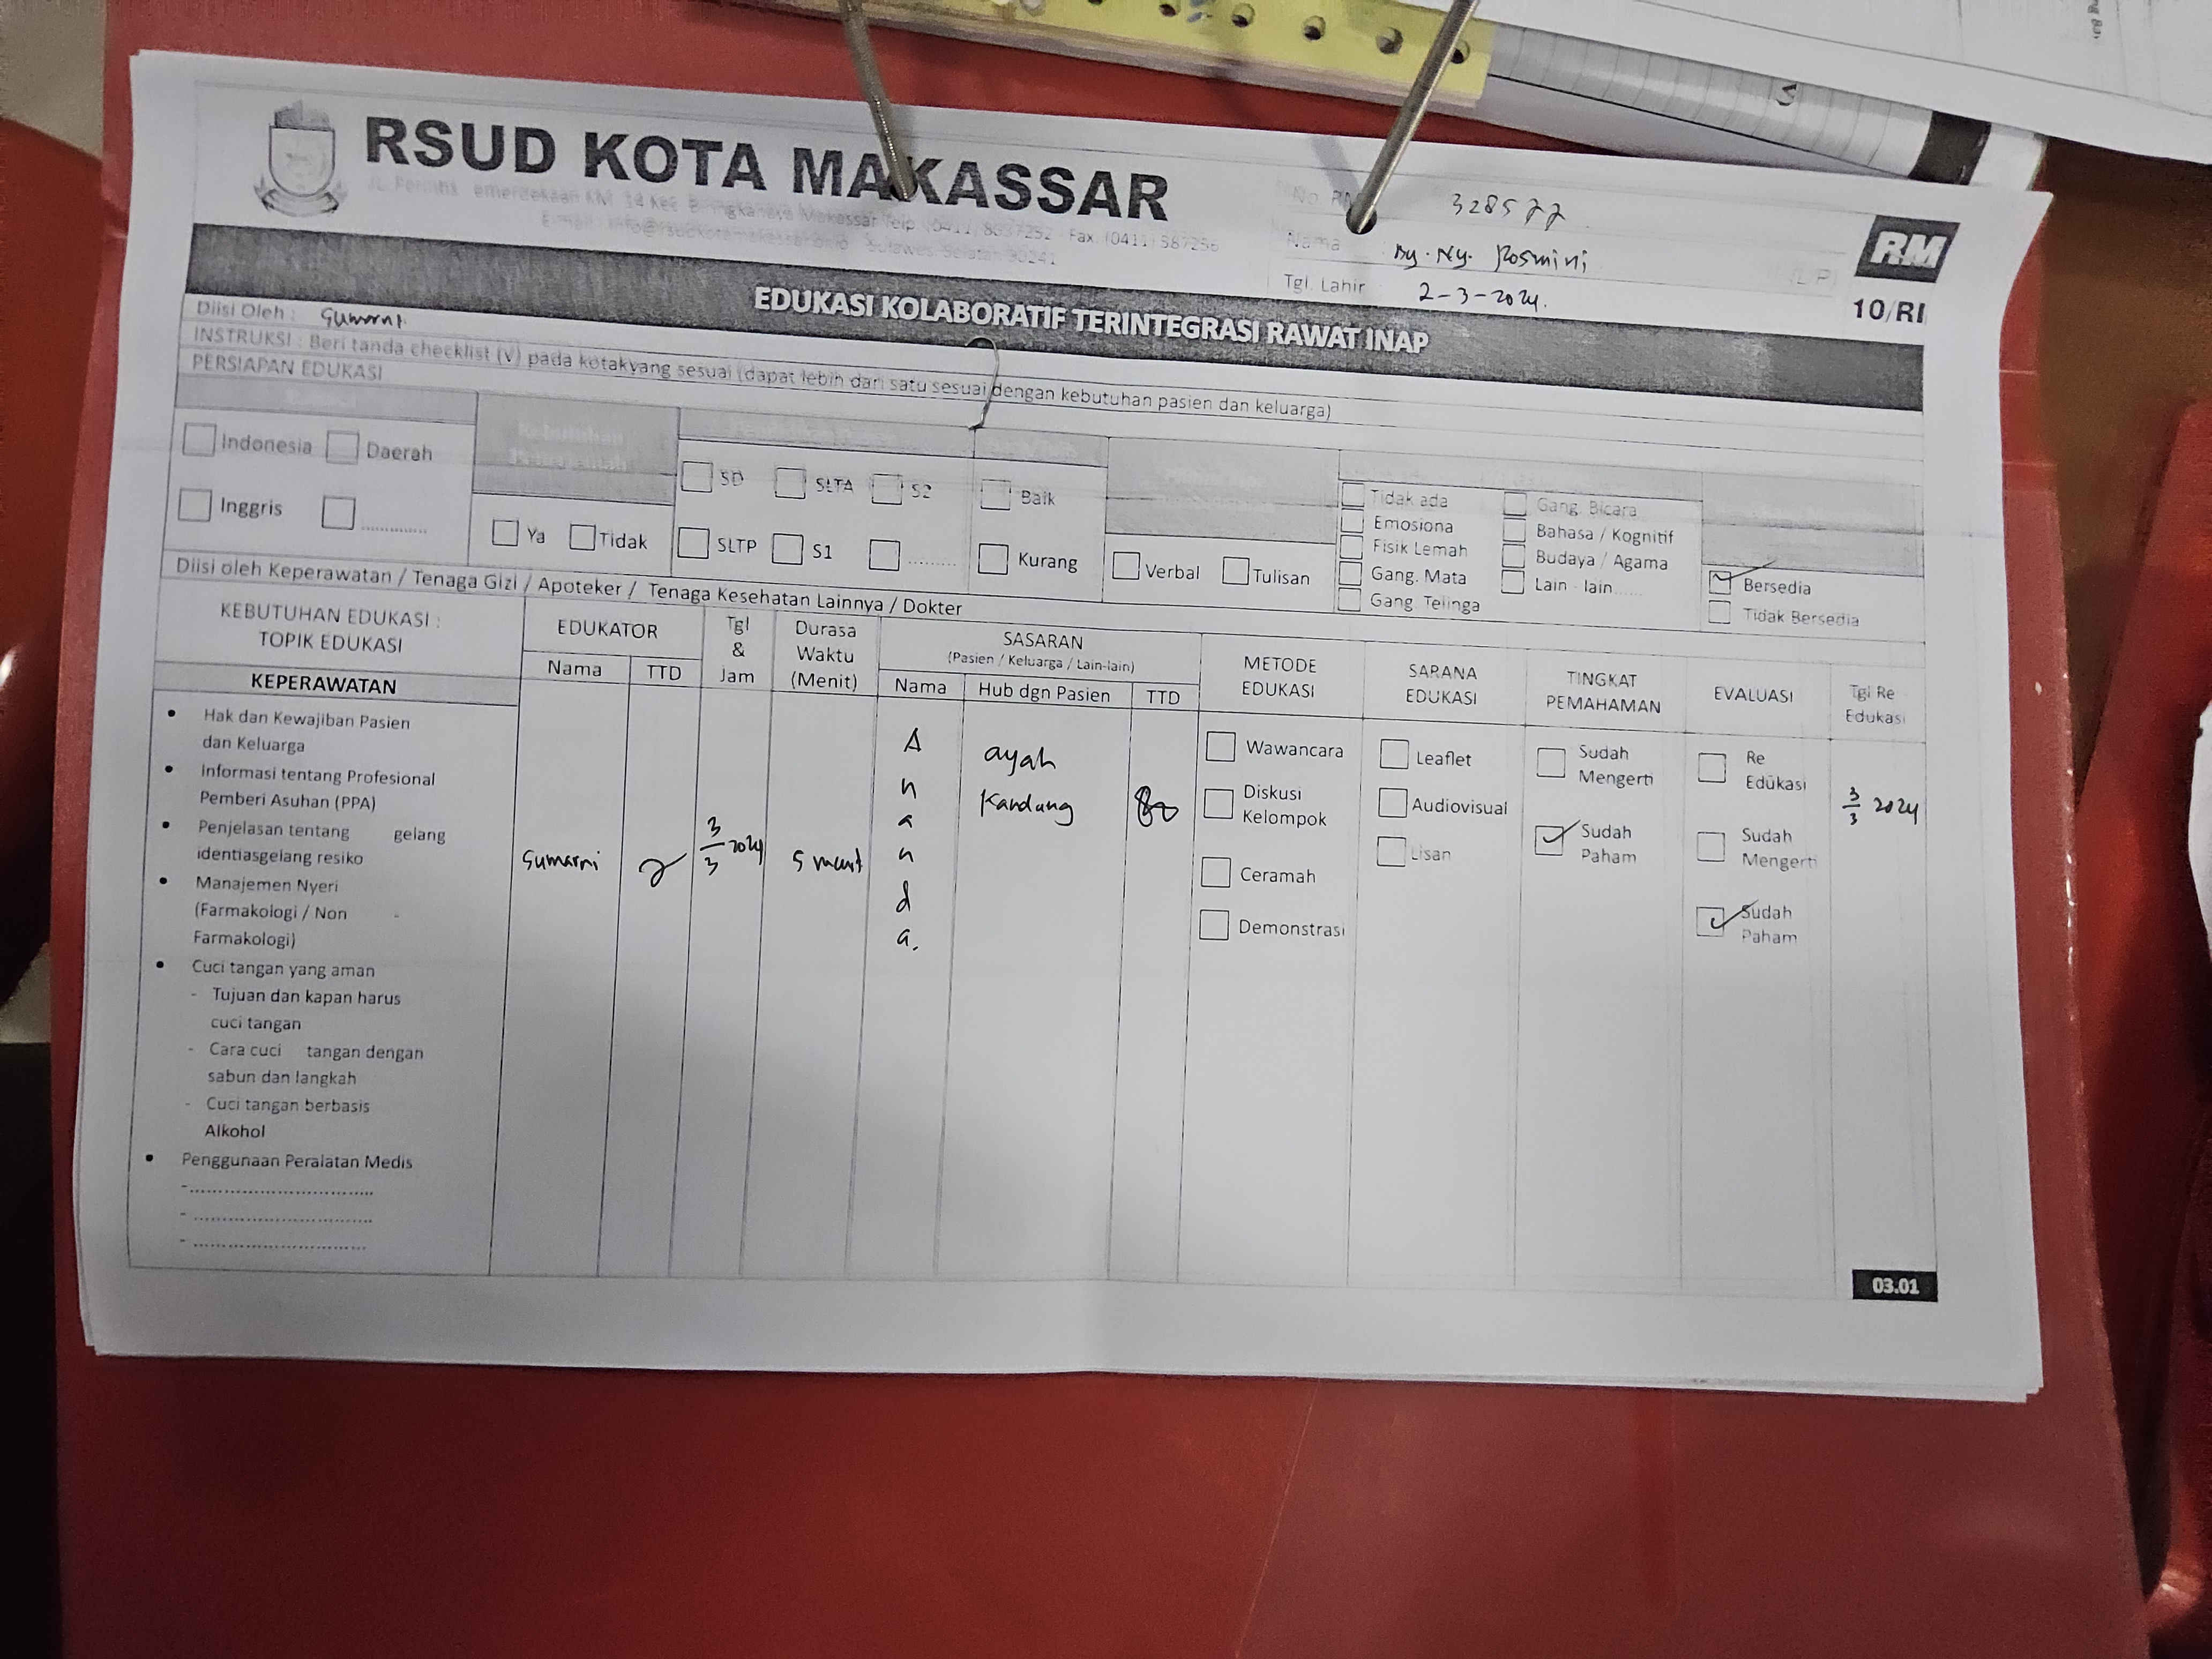 RSUD KOTA MAKASSAR
emerdekaan KM. 14 Kec. Makassar Telp. (0411) Fax. (0411)
No RM 328577
Nama : By. Ny. Rosmini
Tgl. Lahir : 2-3-2024.
RM
10/RI
EDUKASI KOLABORATIF TERINTEGRASI RAWAT INAP
Diisi Oleh : Sumarni
INSTRUKSI : Beri tanda checklist (v) pada kotakyang sesuai (dapat lebih dari satu sesuai dengan kebutuhan pasien dan keluarga)
PERSIAPAN EDUKASI
Indonesia Daerah
Inggris .............
Ya Tidak
SD SLTA S2
SLTP S1 .........
Baik
Kurang
Verbal Tulisan
Tidak ada
Emosiona
Fisik Lemah
Gang. Mata
Gang. Telinga
Gang. Bicara
Bahasa / Kognitif
Budaya / Agama
Lain - lain......
Bersedia
Tidak Bersedia
Diisi oleh Keperawatan / Tenaga Gizi / Apoteker / Tenaga Kesehatan Lainnya / Dokter
KEBUTUHAN EDUKASI :
TOPIK EDUKASI
EDUKATOR
Nama TTD
Tgl
&
Jam
Durasa
Waktu
(Menit)
SASARAN
(Pasien / Keluarga / Lain-lain)
Nama Hub dgn Pasien TTD
METODE
EDUKASI
SARANA
EDUKASI
TINGKAT
PEMAHAMAN
EVALUASI
Tgl Re
Edukasi
KEPERAWATAN
• Hak dan Kewajiban Pasien
dan Keluarga
• Informasi tentang Profesional
Pemberi Asuhan (PPA)
• Penjelasan tentang gelang
identiasgelang resiko
• Manajemen Nyeri
(Farmakologi / Non -
Farmakologi)
• Cuci tangan yang aman
- Tujuan dan kapan harus
cuci tangan
- Cara cuci tangan dengan
sabun dan langkah
- Cuci tangan berbasis
Alkohol
• Penggunaan Peralatan Medis
-................................
- ...............................
- ..............................
Sumarni
3/3 2024
5 menit
A
n
a
n
d
a.
ayah
Kandung
Wawancara
Diskusi
Kelompok
Ceramah
Demonstrasi
Leaflet
Audiovisual
Lisan
Sudah
Mengerti
Sudah
Paham
Re
Edukasi
Sudah
Mengerti
Sudah
Paham
3/3 2024
03.01